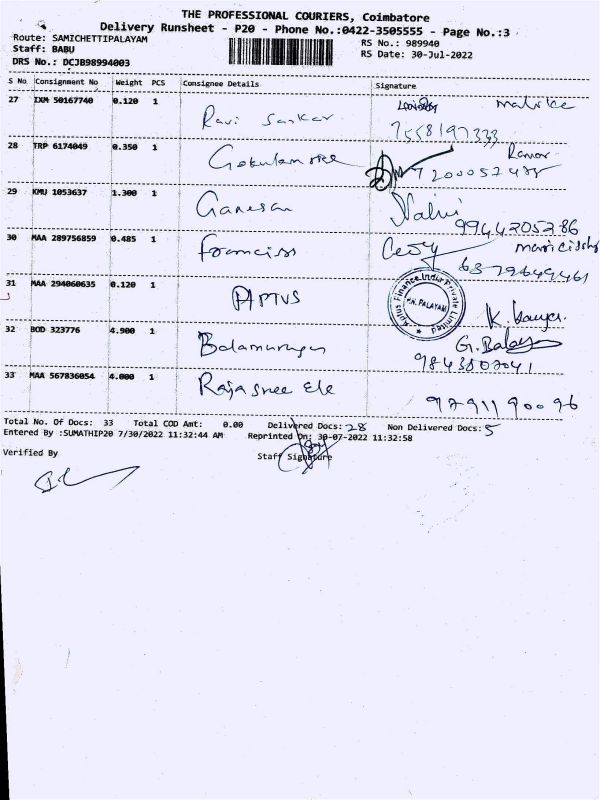 THE PROFESSIONAL COURIERS, Coimbatore
Delivery Runsheet - P20 - Phone No.:0422-3505555 - Page No.:3
Route: SAMICHETTIPALAYAM
RS No.: 989940
Staff: BABU
RS Date: 30-Jul-2022
DRS No.: DCJB98994003
S No Consignment No Weight PCS Consignee Details Signature
27 IXM 50167740 0.120 1 Ravi Sankar
7558197333
28 TRP 6174049 0.350 1
29 KMU 1053637 1.300 1 Ganesan Nalni
9944205286
30 MAA 289756859 0.485 1 Francis
6379649461
31 MAA 294060635 0.120 1 APTVS
Aptus Finance India Private Limited
P.N. PALAYAM
32 BOD 323776 4.900 1 Balamurugan G. Balay
9843507041
33 MAA 567836054 4.000 1 Rajasree Ele
9791190096
Total No. Of Docs: 33 Total COD Amt: 0.00 Delivered Docs: 28 Non Delivered Docs: 5
Entered By :SUMATHIP20 7/30/2022 11:32:44 AM Reprinted On: 30-07-2022 11:32:58
Verified By
Staff Signature